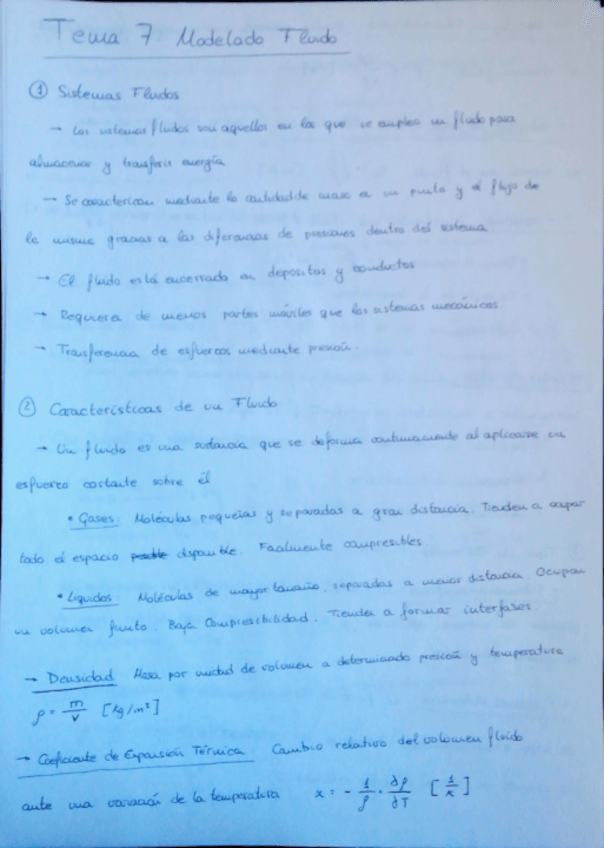 Tema 7 Modelado Fluido
① Sistemas Fluidos
→ Los sistemas fluidos son aquellos en los que se emplea un fluido para
almacenar y transferir energía
→ Se caracterizan mediante la cantidad de masa en un punto y el flujo de
la misma gracias a las diferencias de presiones dentro del sistema.
→ El fluido está encerrado en depositos y conductos
→ Requiere de menos partes móviles que los sistemas mecánicos
→ Transferencia de esfuerzos mediante presión.
② Características de un Fluido
→ Un fluido es una sustancia que se deforma continuamente al aplicarse un
esfuerzo cortante sobre él
• Gases: Moléculas pequeñas y separadas a gran distancia. Tienden a ocupar
todo el espacio posible disponible. Facilmente compresibles.
• Líquidos Moléculas de mayor tamaño, separadas a menor distancia. Ocupan
un volumen finito. Baja Compresibilidad. Tienden a formar interfases.
→ Densidad Masa por unidad de volumen a determinada presión y temperatura
ρ = m/v [kg/m³]
→ Coeficiente de Expansión Térmica. Cambio relativo del volumen fluido
ante una variación de la temperatura α = - 1/ρ · ∂ρ/∂T [1/K]